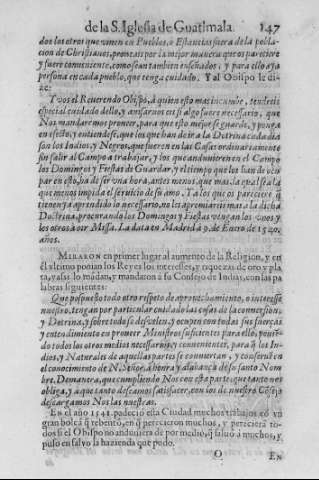 de la S. Iglesia de Guatimala. 147
dos los otros que viuen en Pueblos, ò Estancias fuera de la pobla-
cion de Christianos, proueais por la mejor manera que os pareciere
y fuere conueniente, como sean tambien enseñados, y para ello aya
persona en cada pueblo, que tenga cuidado. Y al Obispo le di-
ze:
Y vos el Reuerendo Obispo, à quien esto mas incumbe, tendreis
especial cuidado dello, y auisarnos eis si algo fuere necessario, que
Nos mandaremos proueer, para que esto mejor se guarde, y ponga
en efecto, y entiendese, que los que han de ir a la Dotrina cada dia
son los Indios, y Negros, que fueren en las Casas ordinariamente
sin salir al Campo a trabajar, y los que anduuieren en el Campo
los Domingos y Fiestas de Guardar, y el tiempo que los han de ocu
par en esto, ha de ser vna hora, antes menos, que mas, la qual sea la
que menos impida el seruicio de su amo. Y a los que os pareciere q̃
tienen ya aprendido lo necessario, no les apremiareis mas a la dicha
Doctrina, procurando los Domingos y Fiestas vengan los vnos, y
los otros a oir Missa. La data en Madrid a 9. de Enero de 1540.
años.
MIRARON en primer lugar al aumento de la Religion, y en
el vltimo ponian los Reyes los interesses, y riquezas de oro y pla
ta, y assi lo mudan, y mandaron a su Consejo de Indias, con las pa
labras siguientes:
Que pospuesto todo otro respeto de aprouechamiento, o interesse
nuestro, tengan por particular cuidado las cosas de la conuersion,
y Dotrina, y sobre todo se desvelen, y ocupen con todas sus fuerças
y entendimiento en proueer Ministros suficientes para ello, ponien
do todos los otros medios necessarios, y conuenientes, para q̃ los In
dios, y Naturales de aquellas partes se conuiertan, y conseruen en
el conocimiento de N. Señor, à honra y alabança de su santo Nom
bre. Demanera, que cumpliendo Nos con esta parte, que tanto nos
obliga, y a que tanto deseamos satisfacer, con los de nuestro Cõsejo
descargamos Nos las nuestras.
En el año 1541. padeciò esta Ciudad muchos trabajos cõ vn
gran bolcã q̃ rebentò, en q̃ perecieron muchos, y perecierã to
dos si el Obispo no anduuiera de por medio, q̃ saluò a muchos, y
puso en salvo la hazienda que pudo.
O EN